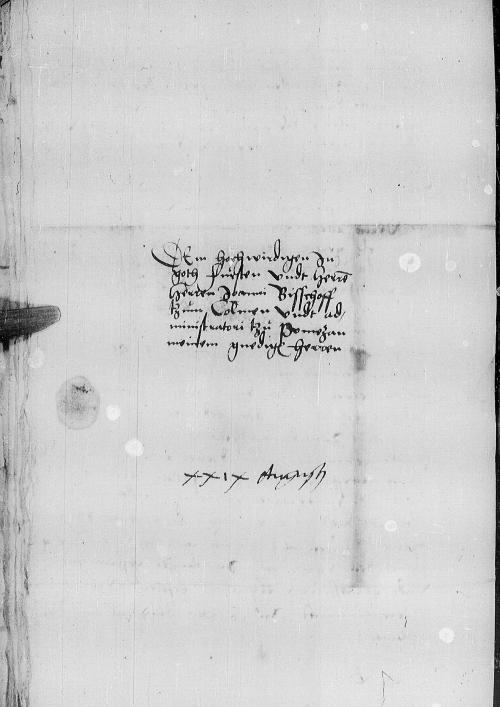 Dem hochwirdigen In
goth fursten vndt herrē
herren Joanni Bisschoff
tzum Colmen vndt ad,
ministratori tzu Pomezan
meinem gnedigē herren
xxix Augusti